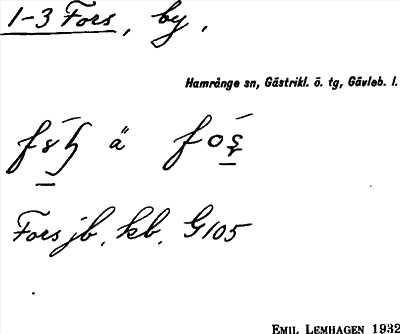 1-3 Fors, by,
Hamrånge sn, Gästrikl. ö. tg, Gävleb. l.
ä
Fors jb, kb, G105
EMIL LEMHAGEN 1932